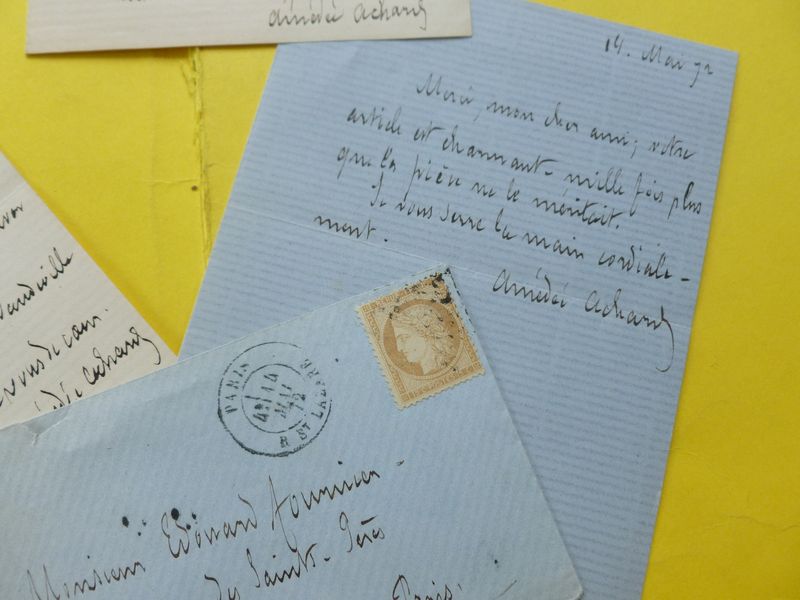 Amédée Achard
14. Mai 72
Merci, mon cher ami; votre
article est charmant - mille fois plus
que la pièce ne le méritait.
Je vous serre la main cordiale-
ment.
Amédée Achard
Vaudeville
vous de cœur.
Amédée Achard
PARIS
MAI
72
R. ST LAZARE
Monsieur Edouard Fournier -
des Saints-Pères
Paris.